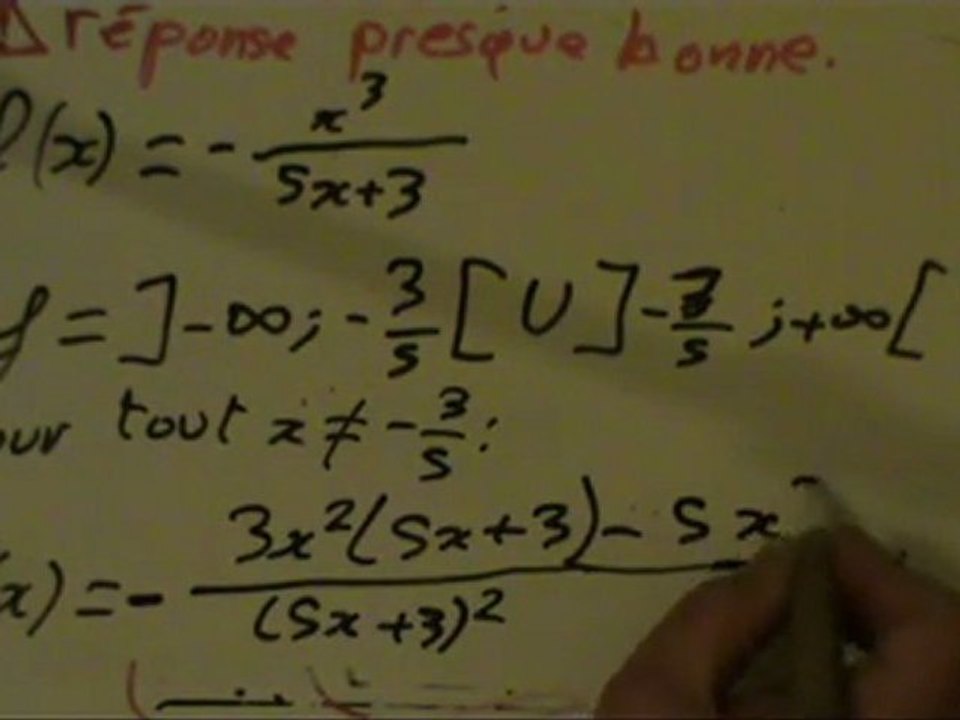 Δ réponse presque bonne.
f(x) = - x³ / (5x+3)
f = ]-∞; -3/5[ U ]-3/5; +∞[
our tout x ≠ -3/5 :
x) = - (3x²(5x+3) - 5x) / (5x+3)²